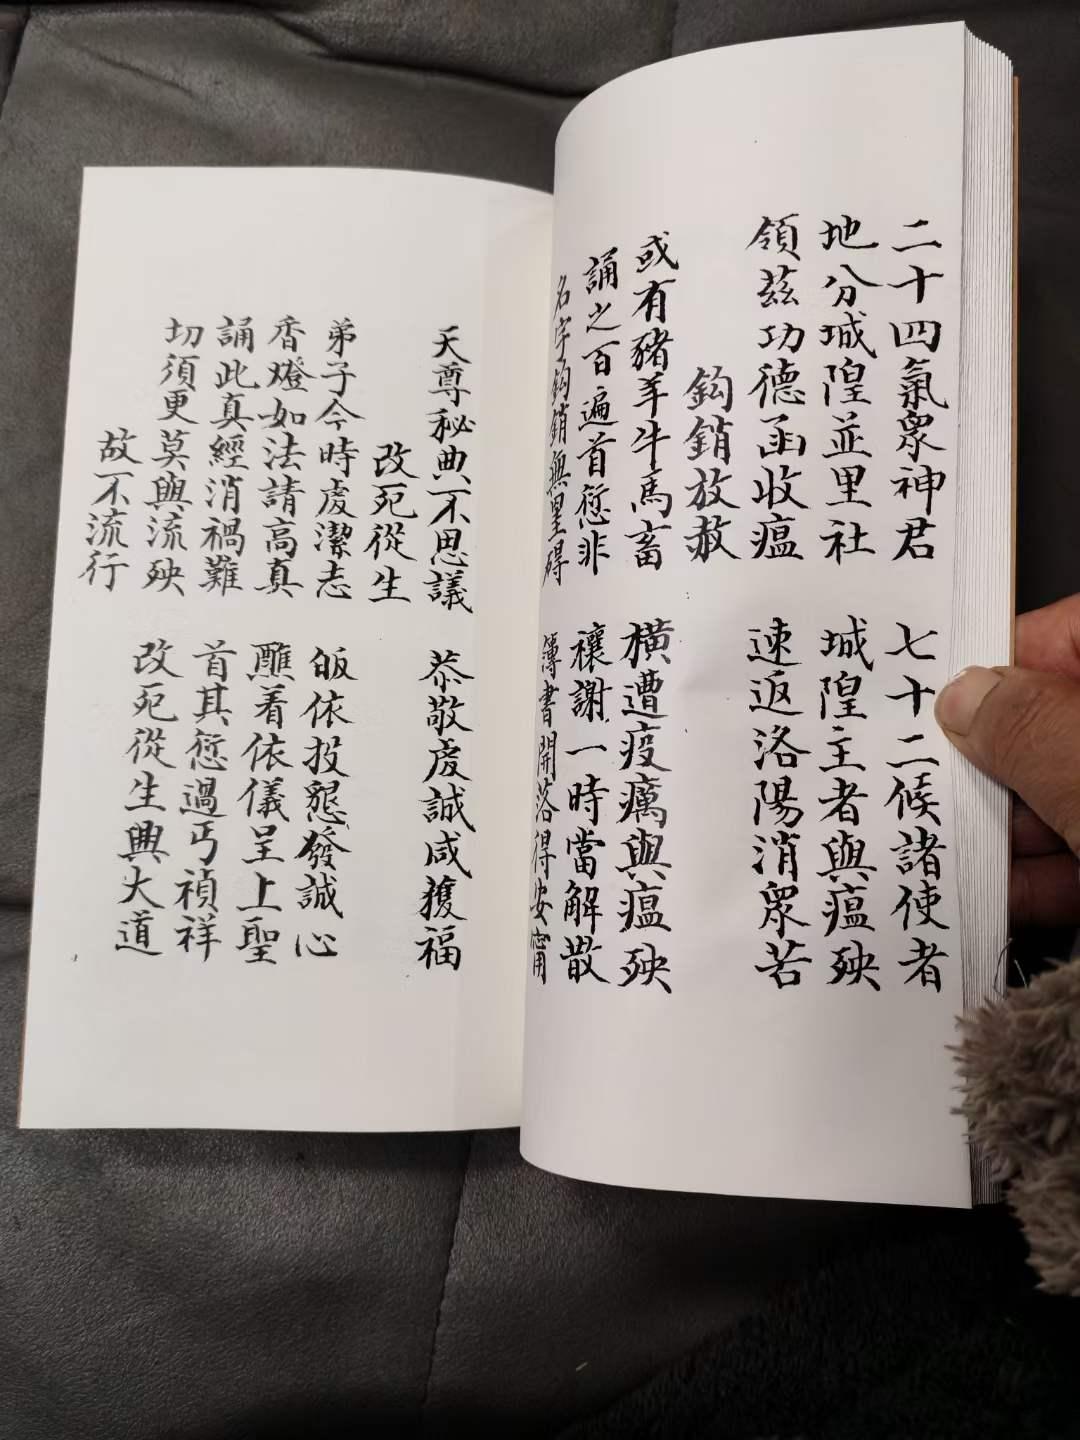 二十四氣眾神君 七十二候諸使者
地分城隍並里社 城隍主者與瘟殃
領茲功德函收瘟 速返洛陽消眾苦
鈎銷放赦
或有豬羊牛馬畜 橫遭疫癘與瘟殃
誦之百遍首愆非 禳謝一時當解散
名字鈎銷無罣碍 簿書開落得安甯
天尊秘典不思議 恭敬虔誠咸獲福
改死從生
弟子今時虔潔志 皈依投懇發誠心
香燈如法請高真 醮着依儀呈上聖
誦此真經消禍難 首其愆過丐禎祥
切須更莫與流殃 改死從生興大道
故不流行